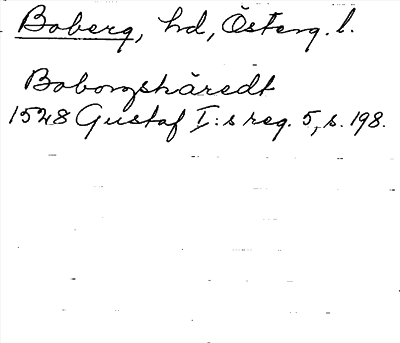 Boberg, hd, Österg. l.
Boborgshäredt
1528 Gustaf I:s reg. 5, s. 198.